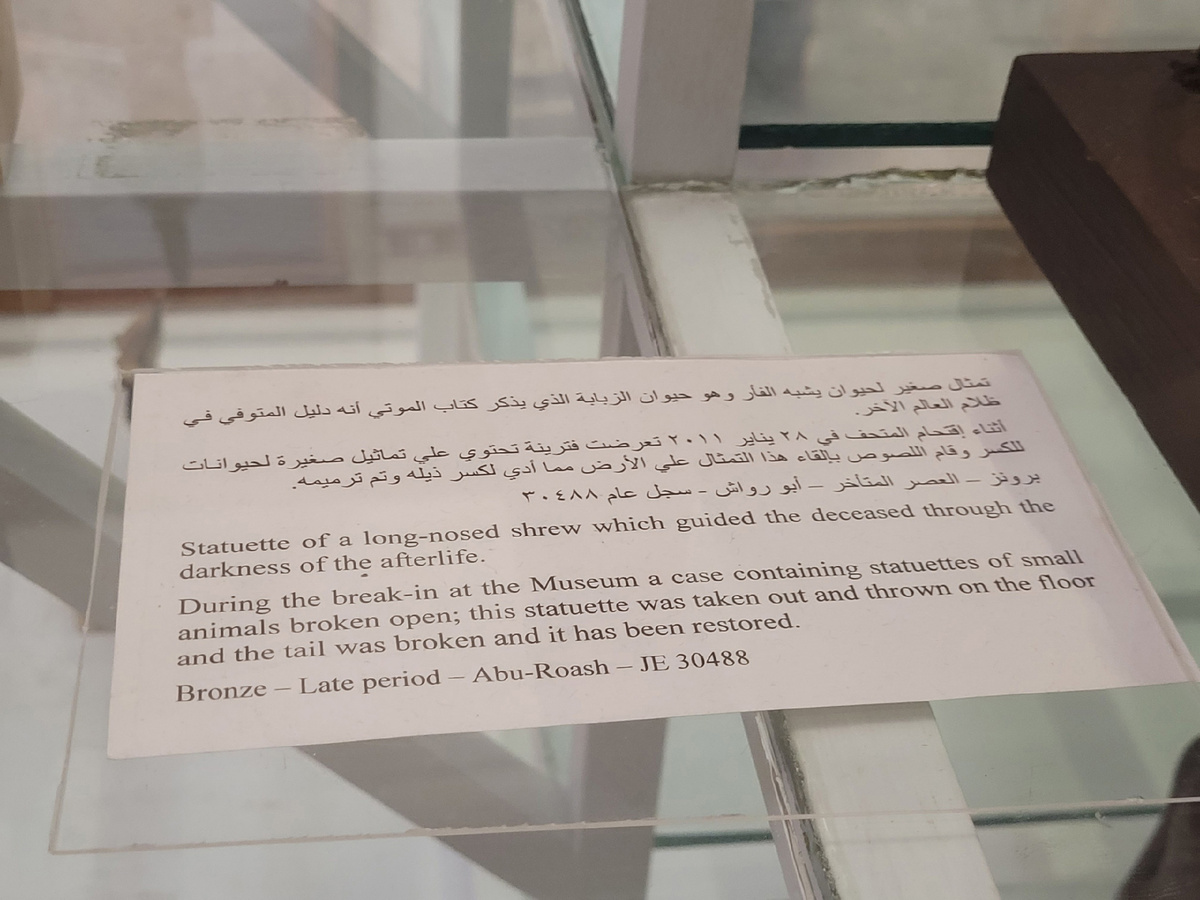 تمثال صغير لحيوان يشبه الفأر وهو حيوان الزبابة الذي يذكر كتاب الموتي أنه دليل المتوفي في
ظلام العالم الآخر.
أثناء إقتحام المتحف في ٢٨ يناير ٢٠١١ تعرضت فترينة تحتوي علي تماثيل صغيرة لحيوانات
للكسر وقام اللصوص بإلقاء هذا التمثال علي الأرض مما أدي لكسر ذيله وتم ترميمه.
برونز – العصر المتأخر – أبو رواش - سجل عام ٣٠٤٨٨
Statuette of a long-nosed shrew which guided the deceased through the
darkness of the afterlife.
During the break-in at the Museum a case containing statuettes of small
animals broken open; this statuette was taken out and thrown on the floor
and the tail was broken and it has been restored.
Bronze – Late period – Abu-Roash – JE 30488